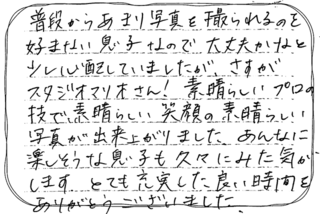 普段からあまり写真を撮られるのを
好まない息子なので大丈夫かなと
少し心配していましたが、さすが
スタジオマリオさん！素晴らしいプロの
技で素晴らしい笑顔の素晴らしい
写真が出来上がりました。あんなに
楽しそうな息子も久々にみた気が
します。とても充実した良い時間を
ありがとうございました。